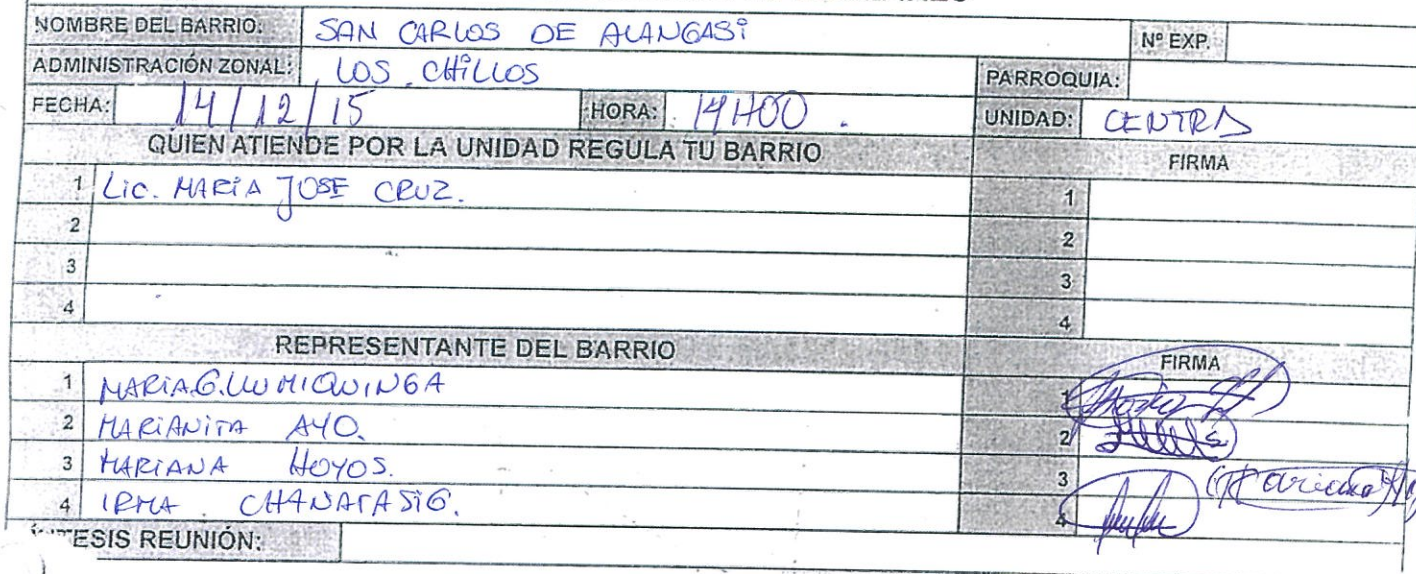 NOMBRE DEL BARRIO: SAN CARLOS DE ALANGASI Nº EXP.
ADMINISTRACIÓN ZONAL: LOS CHILLOS PARROQUIA:
FECHA: 14/12/15 HORA: 14H00. UNIDAD: CENTRAL
QUIEN ATIENDE POR LA UNIDAD REGULA TU BARRIO FIRMA
1 Lic. MARIA JOSE CRUZ. 1
2 2
3 3
4 4
REPRESENTANTE DEL BARRIO FIRMA
1 MARIA.G.LLUMIQUINGA 1
2 MARIANITA AYO. 2
3 MARIANA HOYOS. 3
4 IRMA CHANATASIG. 4
TESIS REUNIÓN: